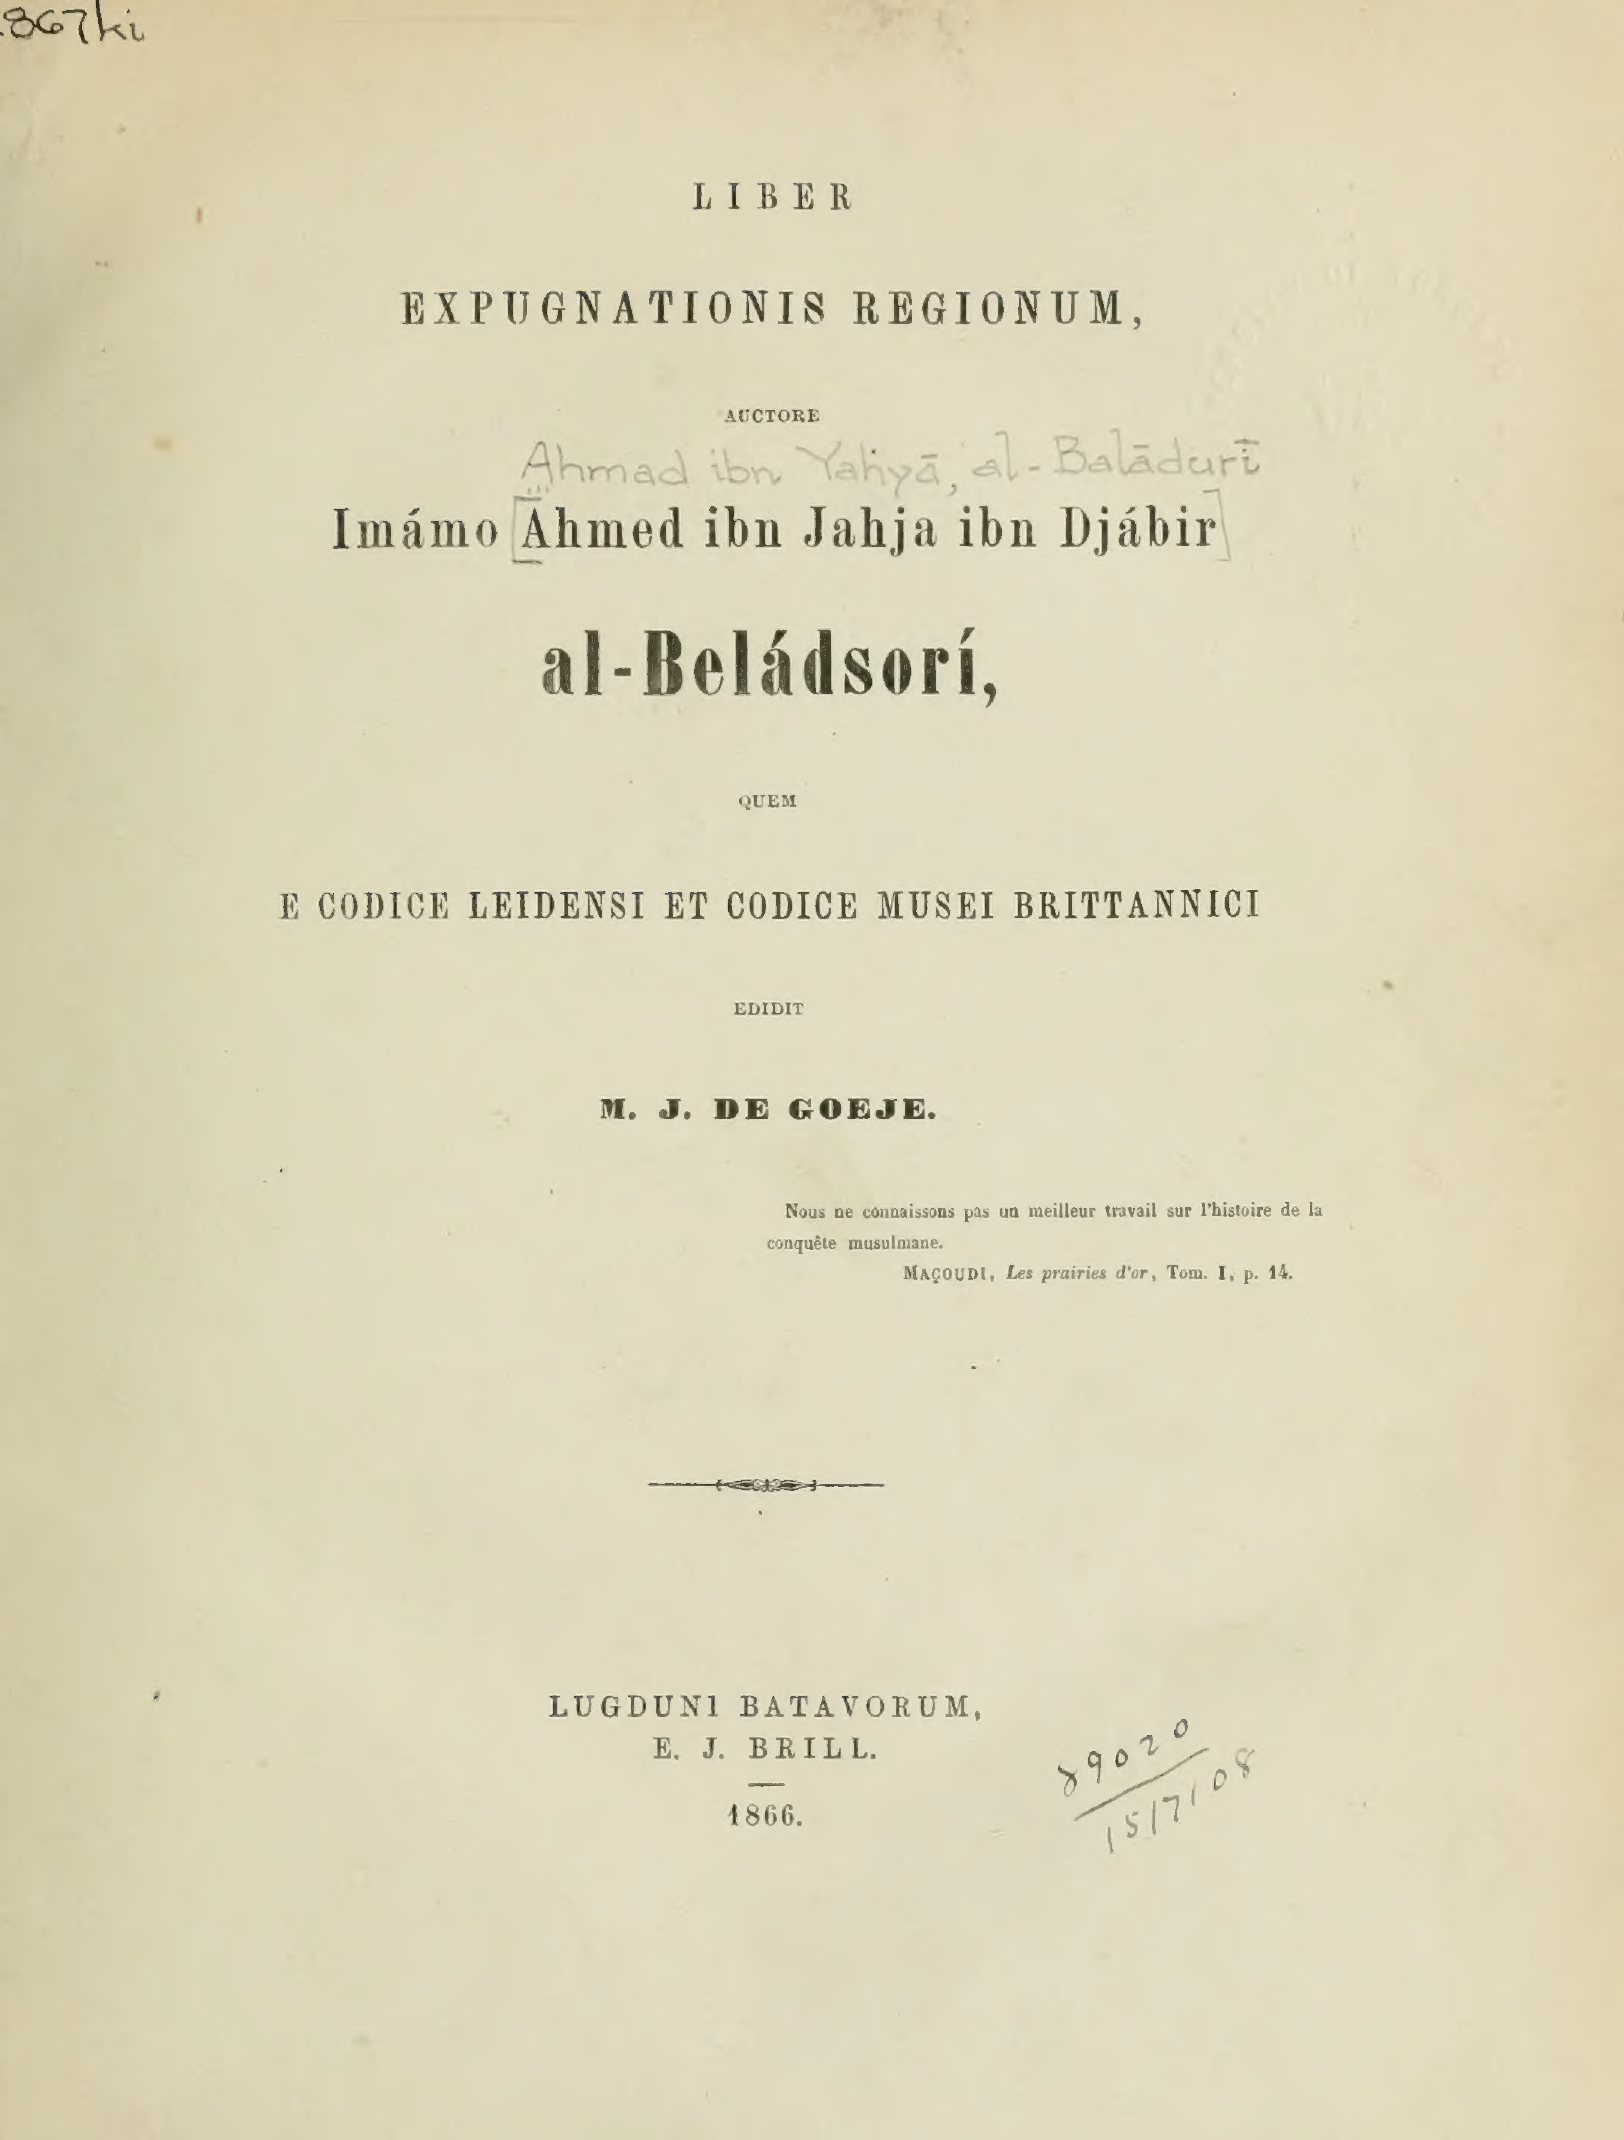 867ki
LIBER
EXPUGNATIONIS REGIONUM,
AUCTORE
Ahmad ibn Yahyā, al-Balāduri
Imámo [Ahmed ibn Jahja ibn Djábir]
al-Beládsorí,
QUEM
E CODICE LEIDENSI ET CODICE MUSEI BRITTANNICI
EDIDIT
M. J. DE GOEJE.
Nous ne connaissons pas un meilleur travail sur l'histoire de la
conquête musulmane.
MAÇOUDI, Les prairies d'or, Tom. I, p. 14.
LUGDUNI BATAVORUM,
E. J. BRILL.
1866.
89020
15/7/08